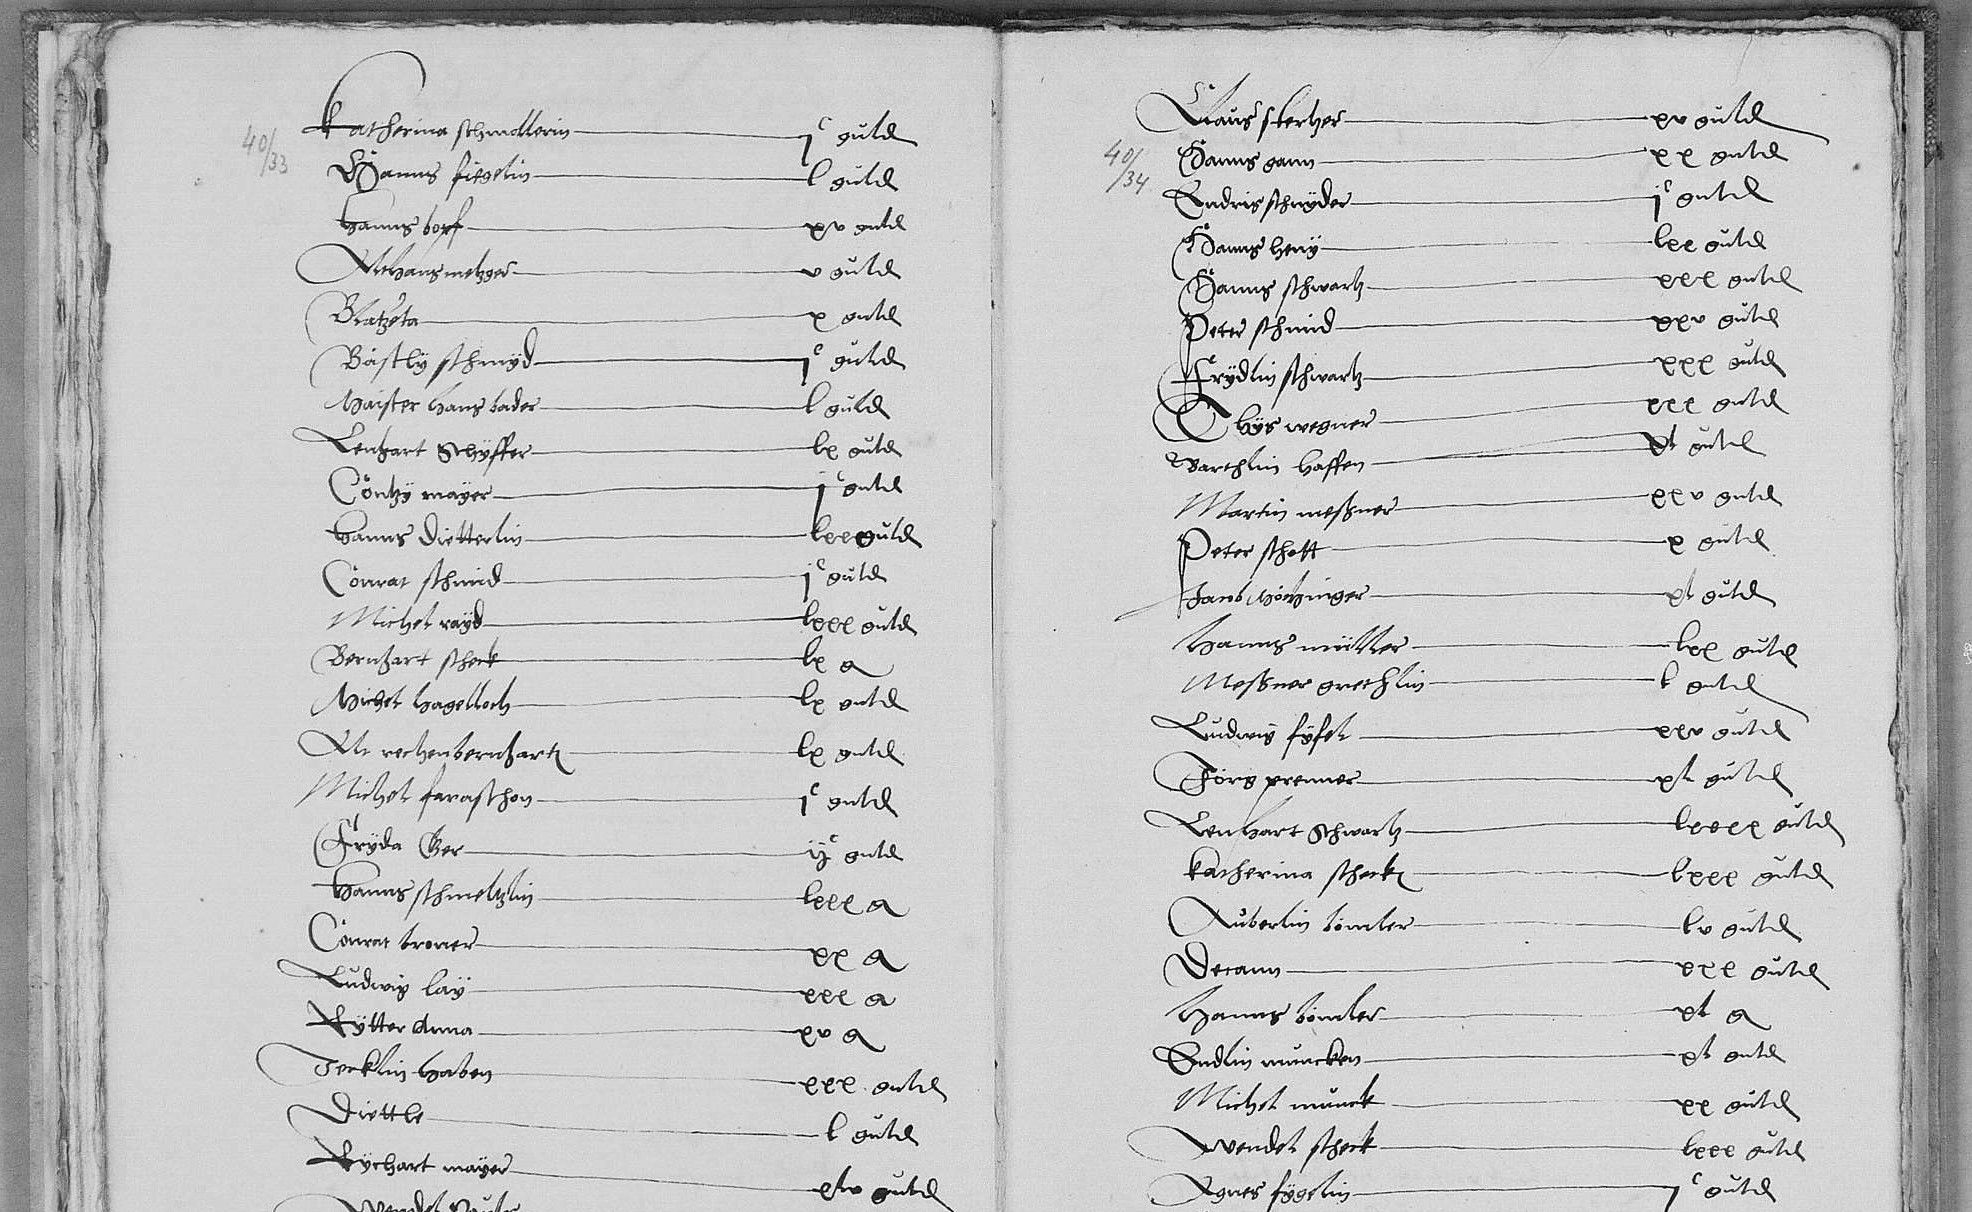 40/33
Katherina schmollerin j^c guld
Hanns figelin l guld
Hanns bopf xv guld
Althans metzger v guld
Blatzeta x guld
Bastly schmyd j^c guld
Maister hans bader l guld
Lenhart Schyffer lx guld
Contzy mayer j^c guld
Hanns Dietterlin lxx guld
Conrat schmid j^c guld
Michel rayd lxxx guld
Bernhart scheck lx g
Michel hagelloch lx guld
Ale rechenbernhartz lx guld
Michel faraschon j^c guld
Fryda Ber ij^c guld
Hanns schmeltzlin lxxx g
Conrat broner xx g
Ludwig lay xxx g
Rytter Anna xv g
Jecklin haben xxx guld
Diettle l guld
Rychart mayer xlv guld
Wendel
40/34
Claus skertzer xv guld
Hanns gann xx guld
Endris schnyder j^c guld
Hanns heny lxx guld
Hanns schwartz xxx guld
Peter schmid xxv guld
Frydlin schwartz xxx guld
Thys wegner xxx guld
Barthlin haffen xl guld
Martin messner xxv guld
Peter schott x guld
Jacob xl guld
Hanns müller lxx guld
Messner grethlin l guld
Ludwig fysel xxv guld
Jörg prenner xl guld
Lenhart Schwartz lxxxx guld
Katherina scheck lxxx guld
Auberlin bömler lv guld
Decann xxx guld
Hanns bömler xl g
Endlin muncken xl guld
Michel munck xx guld
Wendel scheck lxxx guld
Agnes fygelin j^c guld